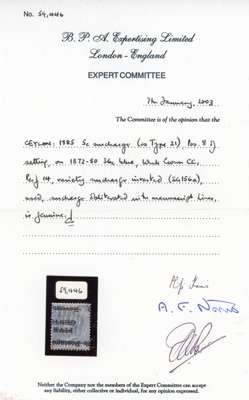 No. 54,446
B. P. A. Expertising Limited
London - England
EXPERT COMMITTEE
7th January, 2003
The Committee is of the opinion that the
CEYLON: 1885 5c surcharge (as Type 21),
setting, on 1872-80 36c blue, Wmk Crown CC,
Perf 14, variety surcharge inverted (SG156a),
used, surcharge obliterated with manuscript lines,
is genuine.
54,446
A. F. Norris
Neither the Company nor the members of the Expert Committee can accept
any liability, either collective or individual, for any opinion expressed.